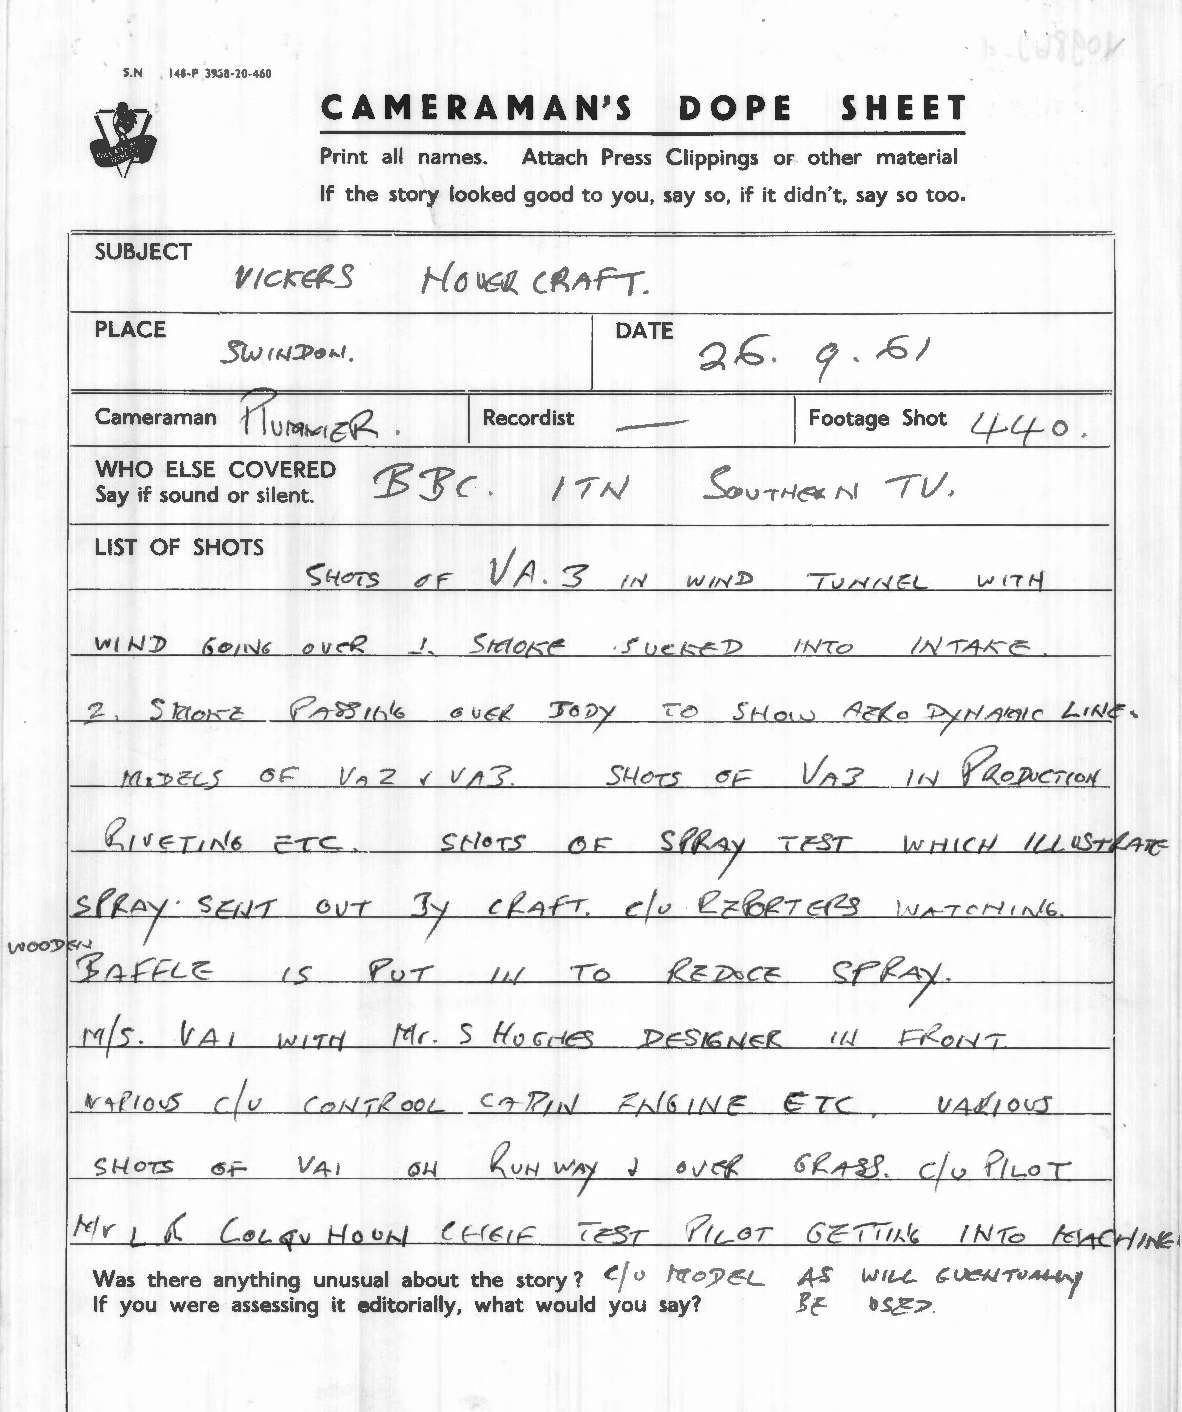 S.N 148-P 3958-20-460
CAMERAMAN'S DOPE SHEET
Print all names. Attach Press Clippings or other material
If the story looked good to you, say so, if it didn't, say so too.
SUBJECT
VICKERS HOVERCRAFT.
PLACE
SWINDON.
DATE
26. 9. 61
Cameraman PLUMMER.
Recordist —
Footage Shot 440.
WHO ELSE COVERED
Say if sound or silent.
BBC. ITN SOUTHERN TV.
LIST OF SHOTS
SHOTS OF VA.3 IN WIND TUNNEL WITH
WIND GOING OVER 1. SMOKE SUCKED INTO INTAKE.
2. SMOKE PASSING OVER BODY TO SHOW AERO DYNAMIC LINE.
MODELS OF VA2 & VA3. SHOTS OF VA3 IN PRODUCTION
RIVETING ETC. SHOTS OF SPRAY TEST WHICH ILLUSTRATE
SPRAY SENT OUT BY CRAFT. C/U REPORTERS WATCHING.
WOODEN
BAFFLE IS PUT IN TO REDUCE SPRAY.
M/S. VA1 WITH Mr. S HUGHES DESIGNER IN FRONT
VARIOUS C/U CONTROOL CABIN ENGINE ETC. VARIOUS
SHOTS OF VA1 ON RUNWAY & OVER GRASS. C/U PILOT
Mr L R COLQUHOUN CHEIF TEST PILOT GETTING INTO MACHINE
Was there anything unusual about the story? C/U MODEL AS WILL EVENTUALLY
If you were assessing it editorially, what would you say? BE USED.